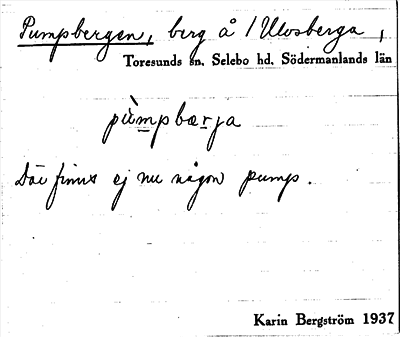 Pumpbergen, berg å / Ulvsberga,
Toresunds sn. Selebo hd. Södermanlands län
pùmpbærja
Där finns ej nu någon pump.
Karin Bergström 1937